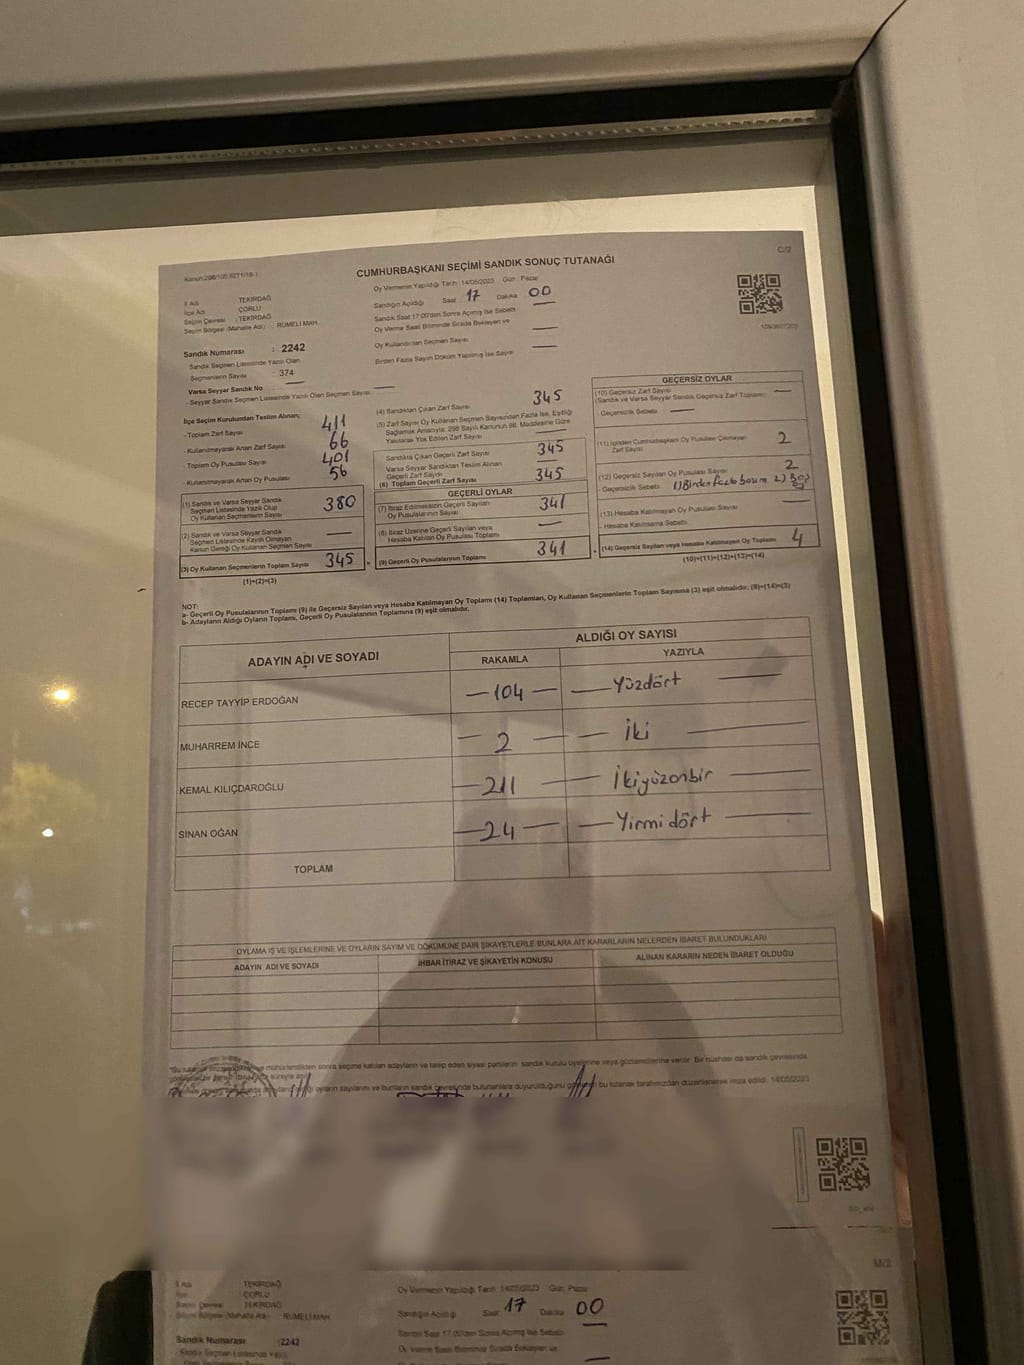 Kanun:298/105,6271/18-1
C/2
CUMHURBAŞKANI SEÇİMİ SANDIK SONUÇ TUTANAĞI
İl Adı : TEKİRDAĞ
İlçe Adı : ÇORLU
Seçim Çevresi : TEKİRDAĞ
Seçim Bölgesi (Mahalle Adı) : RUMELİ MAH.
Oy Vermenin Yapıldığı Tarih: 14/05/2023 Gün: Pazar
Sandığın Açıldığı Saat 17 Dakika 00
Sandık Saat 17:00'den Sonra Açılmış İse Sebebi
Oy Verme Saati Bitiminde Sırada Bekleyen ve
Oy Kullandırılan Seçmen Sayısı
Birden Fazla Sayım Döküm Yapılmış İse Sayısı
Sandık Numarası : 2242
Sandık Seçmen Listesinde Yazılı Olan
Seçmenlerin Sayısı 374
Varsa Seyyar Sandık No
- Seyyar Sandık Seçmen Listesinde Yazılı Olan Seçmen Sayısı
İlçe Seçim Kurulundan Teslim Alınan;
- Toplam Zarf Sayısı 411
- Kullanılmayarak Artan Zarf Sayısı 66
- Toplam Oy Pusulası Sayısı 401
- Kullanılmayarak Artan Oy Pusulası 56
(1) Sandık ve Varsa Seyyar Sandık
Seçmen Listesinde Yazılı Olup
Oy Kullanan Seçmenlerin Sayısı 380
(2) Sandık ve Varsa Seyyar Sandık
Seçmen Listesinde Kayıtlı Olmayan
Kanun Gereği Oy Kullanan Seçmen Sayısı
(3) Oy Kullanan Seçmenlerin Toplam Sayısı 345
(1)+(2)=(3)
(4) Sandıktan Çıkan Zarf Sayısı 345
(5) Zarf Sayısı Oy Kullanan Seçmen Sayısından Fazla İse, Eşitliği
Sağlamak Amacıyla; 298 Sayılı Kanunun 98. Maddesine Göre
Yakılarak Yok Edilen Zarf Sayısı
Sandıkta Çıkan Geçerli Zarf Sayısı 345
Varsa Seyyar Sandıktan Teslim Alınan
Geçerli Zarf Sayısı
(6) Toplam Geçerli Zarf Sayısı 345
GEÇERLİ OYLAR
(7) İtiraz Edilmeksizin Geçerli Sayılan
Oy Pusulalarının Sayısı 341
(8) İtiraz Üzerine Geçerli Sayılan veya
Hesaba Katılan Oy Pusulası Toplamı
(9) Geçerli Oy Pusulalarının Toplamı 341
GEÇERSİZ OYLAR
(10) Geçersiz Zarf Sayısı
(Sandık ve Varsa Seyyar Sandık Geçersiz Zarf Toplamı)
Geçersizlik Sebebi
(11) İçinden Cumhurbaşkanı Oy Pusulası Çıkmayan
Zarf Sayısı 2
(12) Geçersiz Sayılan Oy Pusulası Sayısı 2
Geçersizlik Sebebi 1) Birden fazla basım 2) Boş
(13) Hesaba Katılmayan Oy Pusulası Sayısı
- Hesaba Katılmama Sebebi
(14) Geçersiz Sayılan veya Hesaba Katılmayan Oy Toplamı 4
(10)+(11)+(12)+(13)=(14)
NOT:
a- Geçerli Oy Pusulalarının Toplamı (9) ile Geçersiz Sayılan veya Hesaba Katılmayan Oy Toplamı (14) Toplamları, Oy Kullanan Seçmenlerin Toplam Sayısına (3) eşit olmalıdır. (9)+(14)=(3)
b- Adayların Aldığı Oyların Toplamı, Geçerli Oy Pusulalarının Toplamına (9) eşit olmalıdır.
ADAYIN ADI VE SOYADI
ALDIĞI OY SAYISI
RAKAMLA YAZIYLA
RECEP TAYYİP ERDOĞAN 104 Yüzdört
MUHARREM İNCE 2 İki
KEMAL KILIÇDAROĞLU 211 İkiyüzonbir
SİNAN OĞAN 24 Yirmidört
TOPLAM
OYLAMA İŞ VE İŞLEMLERİNE VE OYLARIN SAYIM VE DÖKÜMÜNE DAİR ŞİKAYETLERLE BUNLARA AİT KARARLARIN NELERDEN İBARET BULUNDUKLARI
ADAYIN ADI VE SOYADI İHBAR İTİRAZ VE ŞİKAYETİN KONUSU ALINAN KARARIN NEDEN İBARET OLDUĞU
mühürlendikten sonra seçime katılan adayların ve talep eden siyasi partilerin sandık kurulu üyelerine veya gözlemcilerine verilir. Bir nüshası da sandık çevresinde
oyların sayılarını ve bunların sandık çevresinde bulunanlara duyurulduğunu bu tutanak tarafımızdan düzenlenerek imza edildi. 14/05/2023
M/2
İl Adı : TEKİRDAĞ
İlçe : ÇORLU
Seçim Çevresi : TEKİRDAĞ
Seçim Bölgesi (Mahalle Adı) : RUMELİ MAH.
Oy Vermenin Yapıldığı Tarih: 14/05/2023 Gün: Pazar
Sandığın Açıldığı Saat 17 Dakika 00
Sandık Saat 17:00'den Sonra Açılmış İse Sebebi
Oy Verme Saati Bitiminde Sırada Bekleyen ve
Sandık Numarası : 2242
Sandık Seçmen Listesinde Yazılı